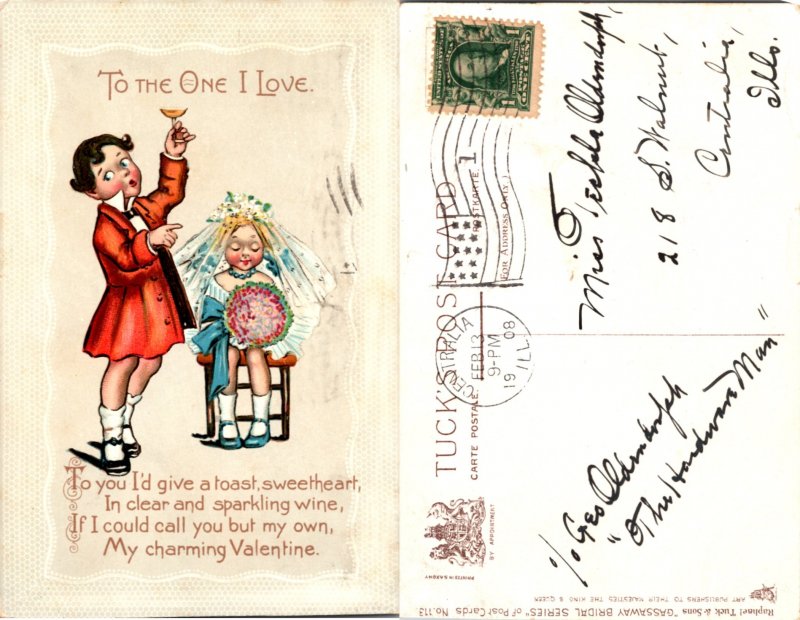 TO THE ONE I LOVE.
To you I'd give a toast, sweetheart,
In clear and sparkling wine,
If I could call you but my own,
My charming Valentine.
TUCK'S POST CARD
CARTE POSTALE.
POSTKARTE
(FOR ADDRESS ONLY.)
1
CENTRALIA
FEB 13
9-PM
19 08
ILL.
BY APPOINTMENT
PRINTED IN SAXONY
Miss Tekla Oldendorph,
218 S. Walnut,
Centralia,
Ills.
c/o Geo Oldendorph
"The Hardware Man"
Raphael Tuck & Sons "GASSAWAY BRIDAL SERIES" of Post Cards, No. 113.
ART PUBLISHERS TO THEIR MAJESTIES THE KING & QUEEN